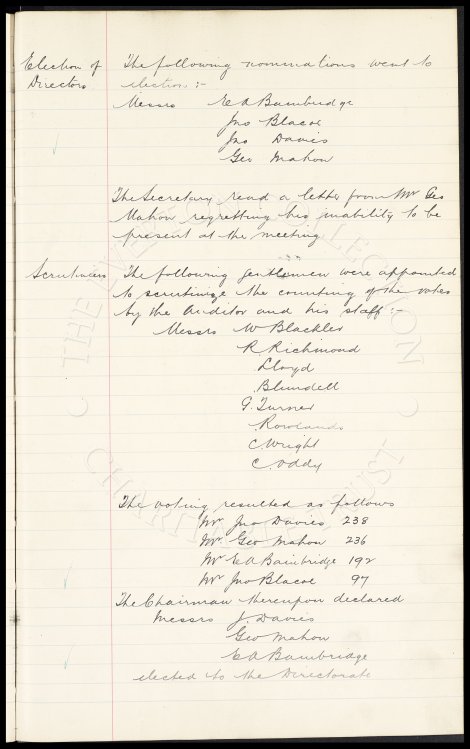 Election of The following nominations went to
Directors election :-
Messrs E A Bainbridge
Jno Blacoe
Jno Davies
Geo Mahon
The Secretary read a letter from Mr Geo
Mahon regretting his inability to be
present at the meeting
Scrutineers The following gentlemen were appointed
to scrutinize the counting of the votes
by the Auditor and his staff :-
Messrs W Blackler
R Richmond
Lloyd
Blundell
G. Turner
Rowlands
C. Wright
C. Oddy
The voting resulted as follows
Mr Jno Davies 238
Mr Geo Mahon 236
Mr E A Bainbridge 192
Mr Jno Blacoe 97
The Chairman thereupon declared
Messrs J. Davies
Geo Mahon
E A Bainbridge
elected to the Directorate